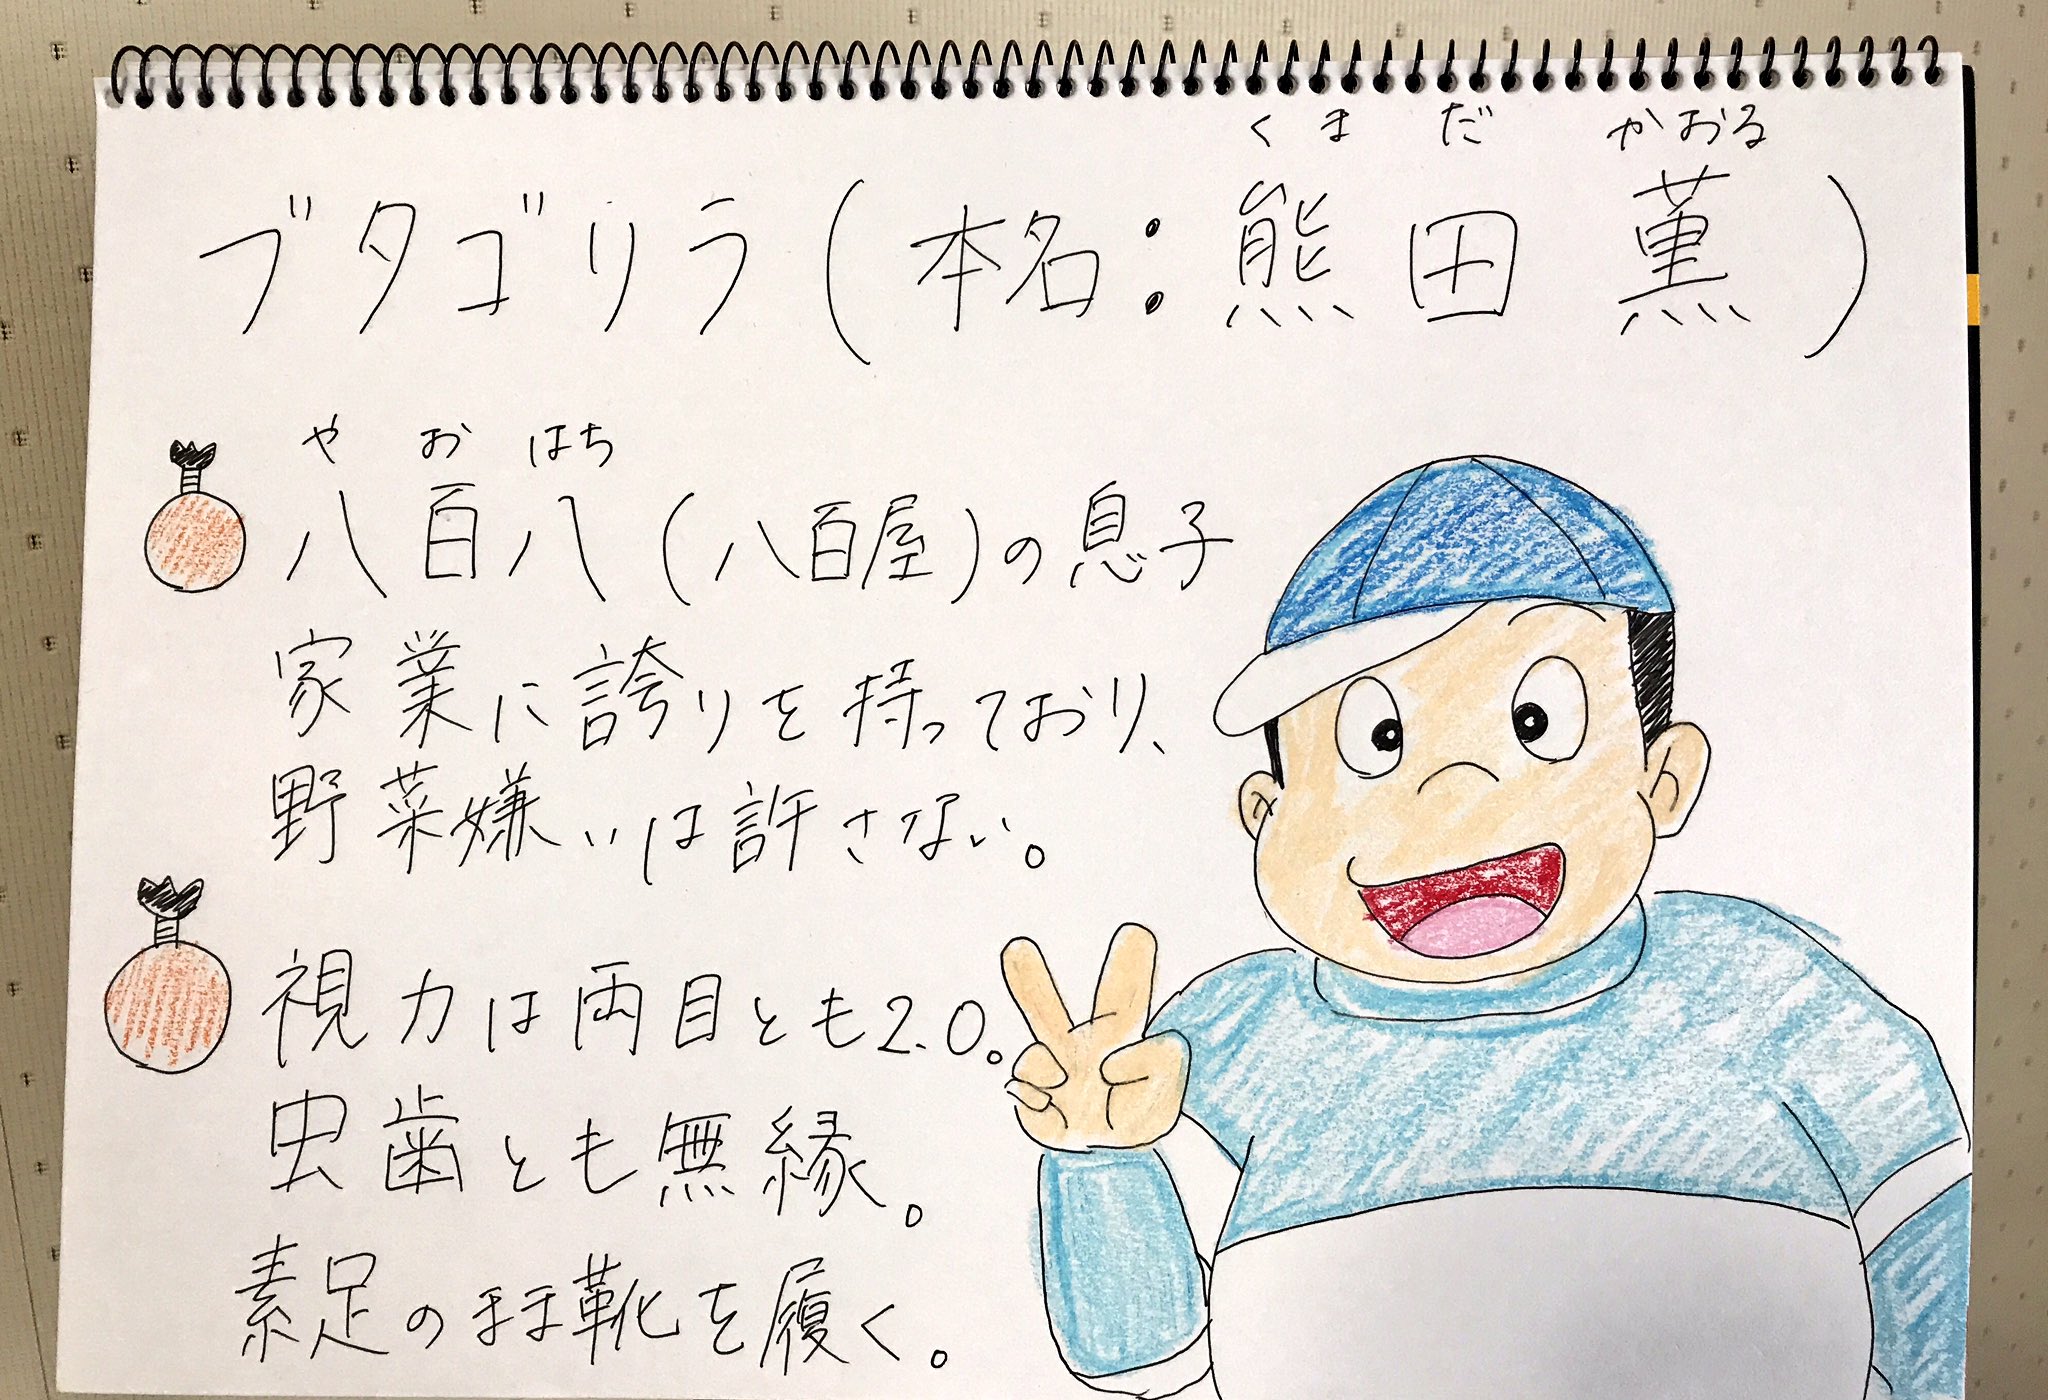 くまだ かおる
ブタゴリラ(本名:熊田 薫)
やおはち
八百八(八百屋)の息子
家業に誇りを持っており、
野菜嫌いは許さない。
視力は両目とも2.0。
虫歯とも無縁。
素足のまま靴を履く。